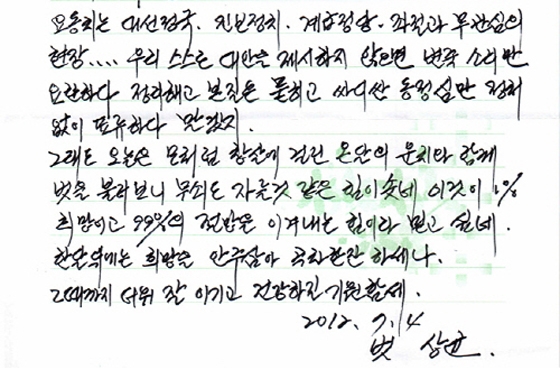 요동치는 대선정국. 진보정치. 계급정당. 좌절과 무관심의
현장.... 우리 스스로 대안을 제시하지 않으면 변죽 소리만
요란하다 정리해고 본질은 묻히고 싸디싼 동정심만 정처
없이 표류하다 말겠지.
그래도 오늘은 모처럼 창살에 걸린 온달의 운치와 함께
벗을 불러보니 무쇠도 자를것 같은 힘이솟네 이것이 1%
희망이고 99%의 절망을 이겨내는 힘이라 믿고 싶네.
한달덕에는 희망을 안주삼아 곡차한잔 하세나.
그때까지 더위 잘 이기고 건강하길 기원함세.
2012. 7. 14
벗 상균.